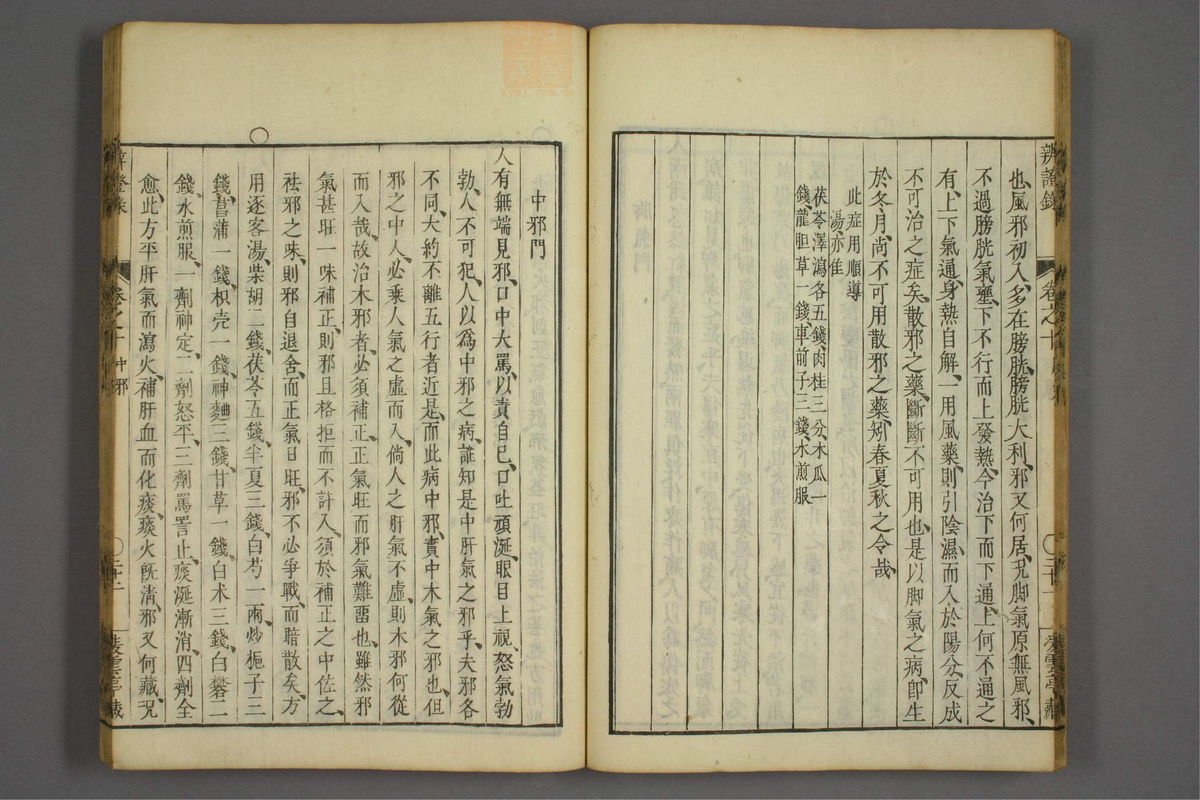 辨證錄
卷之十
二十一
藏
也、風邪初入、多在膀胱、膀胱大利、邪又何居、况脚氣原無風邪、
不過膀胱氣壅、下不行而上發熱、今治下而下通、上何不通之
有、上下氣通、身熱自解、一用風藥、則引陰濕而入於陽分、反成
不可治之症矣、散邪之藥、斷斷不可用也、是以脚氣之病、卽生
於冬月、尚不可用散邪之藥、矧春夏秋之令哉、
此症用順導
湯、亦佳
茯苓澤瀉各五錢、肉桂三分、木瓜一
錢、龍胆草一錢、車前子三錢、水煎服
中邪門
人有無端見邪、口中大罵、以責自己、口吐頑涎、眼目上視、怒氣勃
勃、人不可犯、人以爲中邪之病、誰知是中肝氣之邪乎、夫邪各
不同、大約不離五行者近是、而此病中邪、實中木氣之邪也、但
邪之中人、必乘人氣之虛而入、倘人之肝氣不虛、則木邪何從
而入哉、故治木邪者、必須補正、正氣旺而邪氣難畱也、雖然邪
氣甚旺、一味補正、則邪且格拒而不許入、須於補正之中、佐之、
祛邪之味、則邪自退舍、而正氣日旺、邪不必爭戰、而暗散矣、方
〇用逐客湯、柴胡二錢、茯苓五錢、半夏三錢、白芍一兩、炒梔子三
錢、菖蒲一錢、枳壳一錢、神麯三錢、甘草一錢、白术三錢、白礬二
錢、水煎服、一劑神定、二劑怒平、三劑罵詈止、痰涎漸消、四劑全
愈、此方平肝氣而瀉火、補肝血而化痰、痰火旣淸、邪又何藏、况
卷之十 中邪
二十二
藏